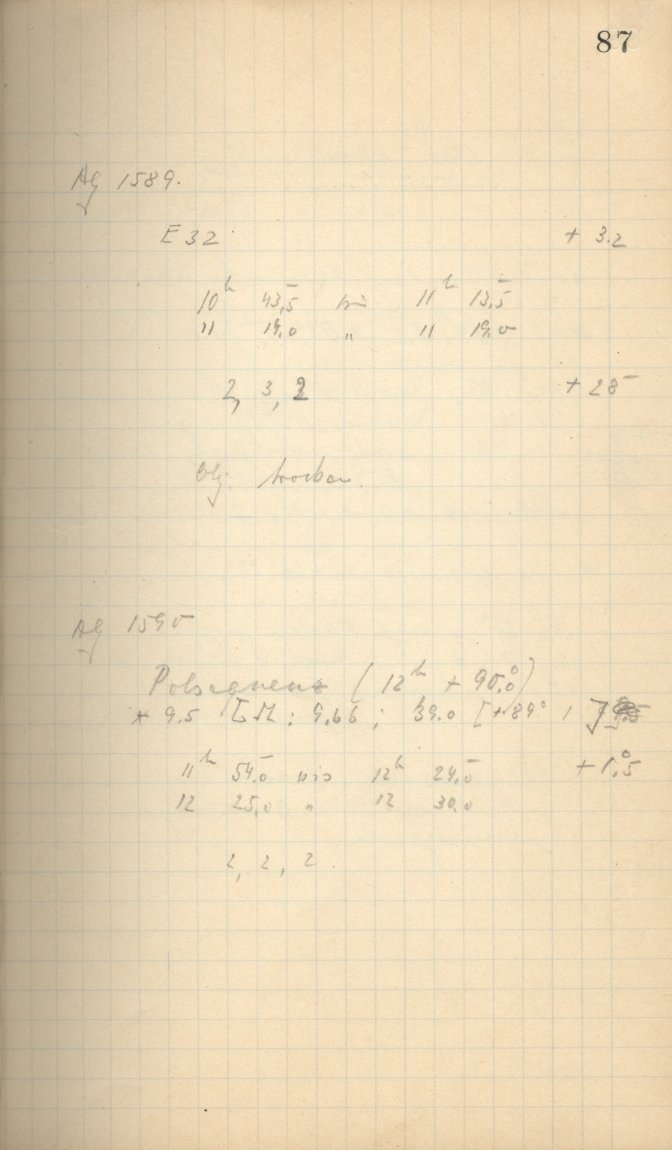 87
Ag 1589.
E 32 + 3.2
10h 43,5 bis 11h 13,5
11 14,0 " 11 19,0
2, 3, 2 + 28
Obj. trocken.
Ag 1590
Polsequenz (12h + 90,0°)
* 9.5 : 9.66 ; 39.0 [+89°
11h 54,0 bis 12h 24,0 + 1,°5
12 25,0 " 12 30,0
2, 2, 2